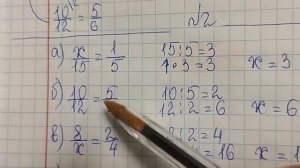 10/12 = 5/6
№2
а) x/15 = 1/5 15:5=3 1·3=3 x=3
б) 10/12 = 5 10:5=2 12:2=6 x=6
в) 8/x = 2/4 :2=4 =16 x=